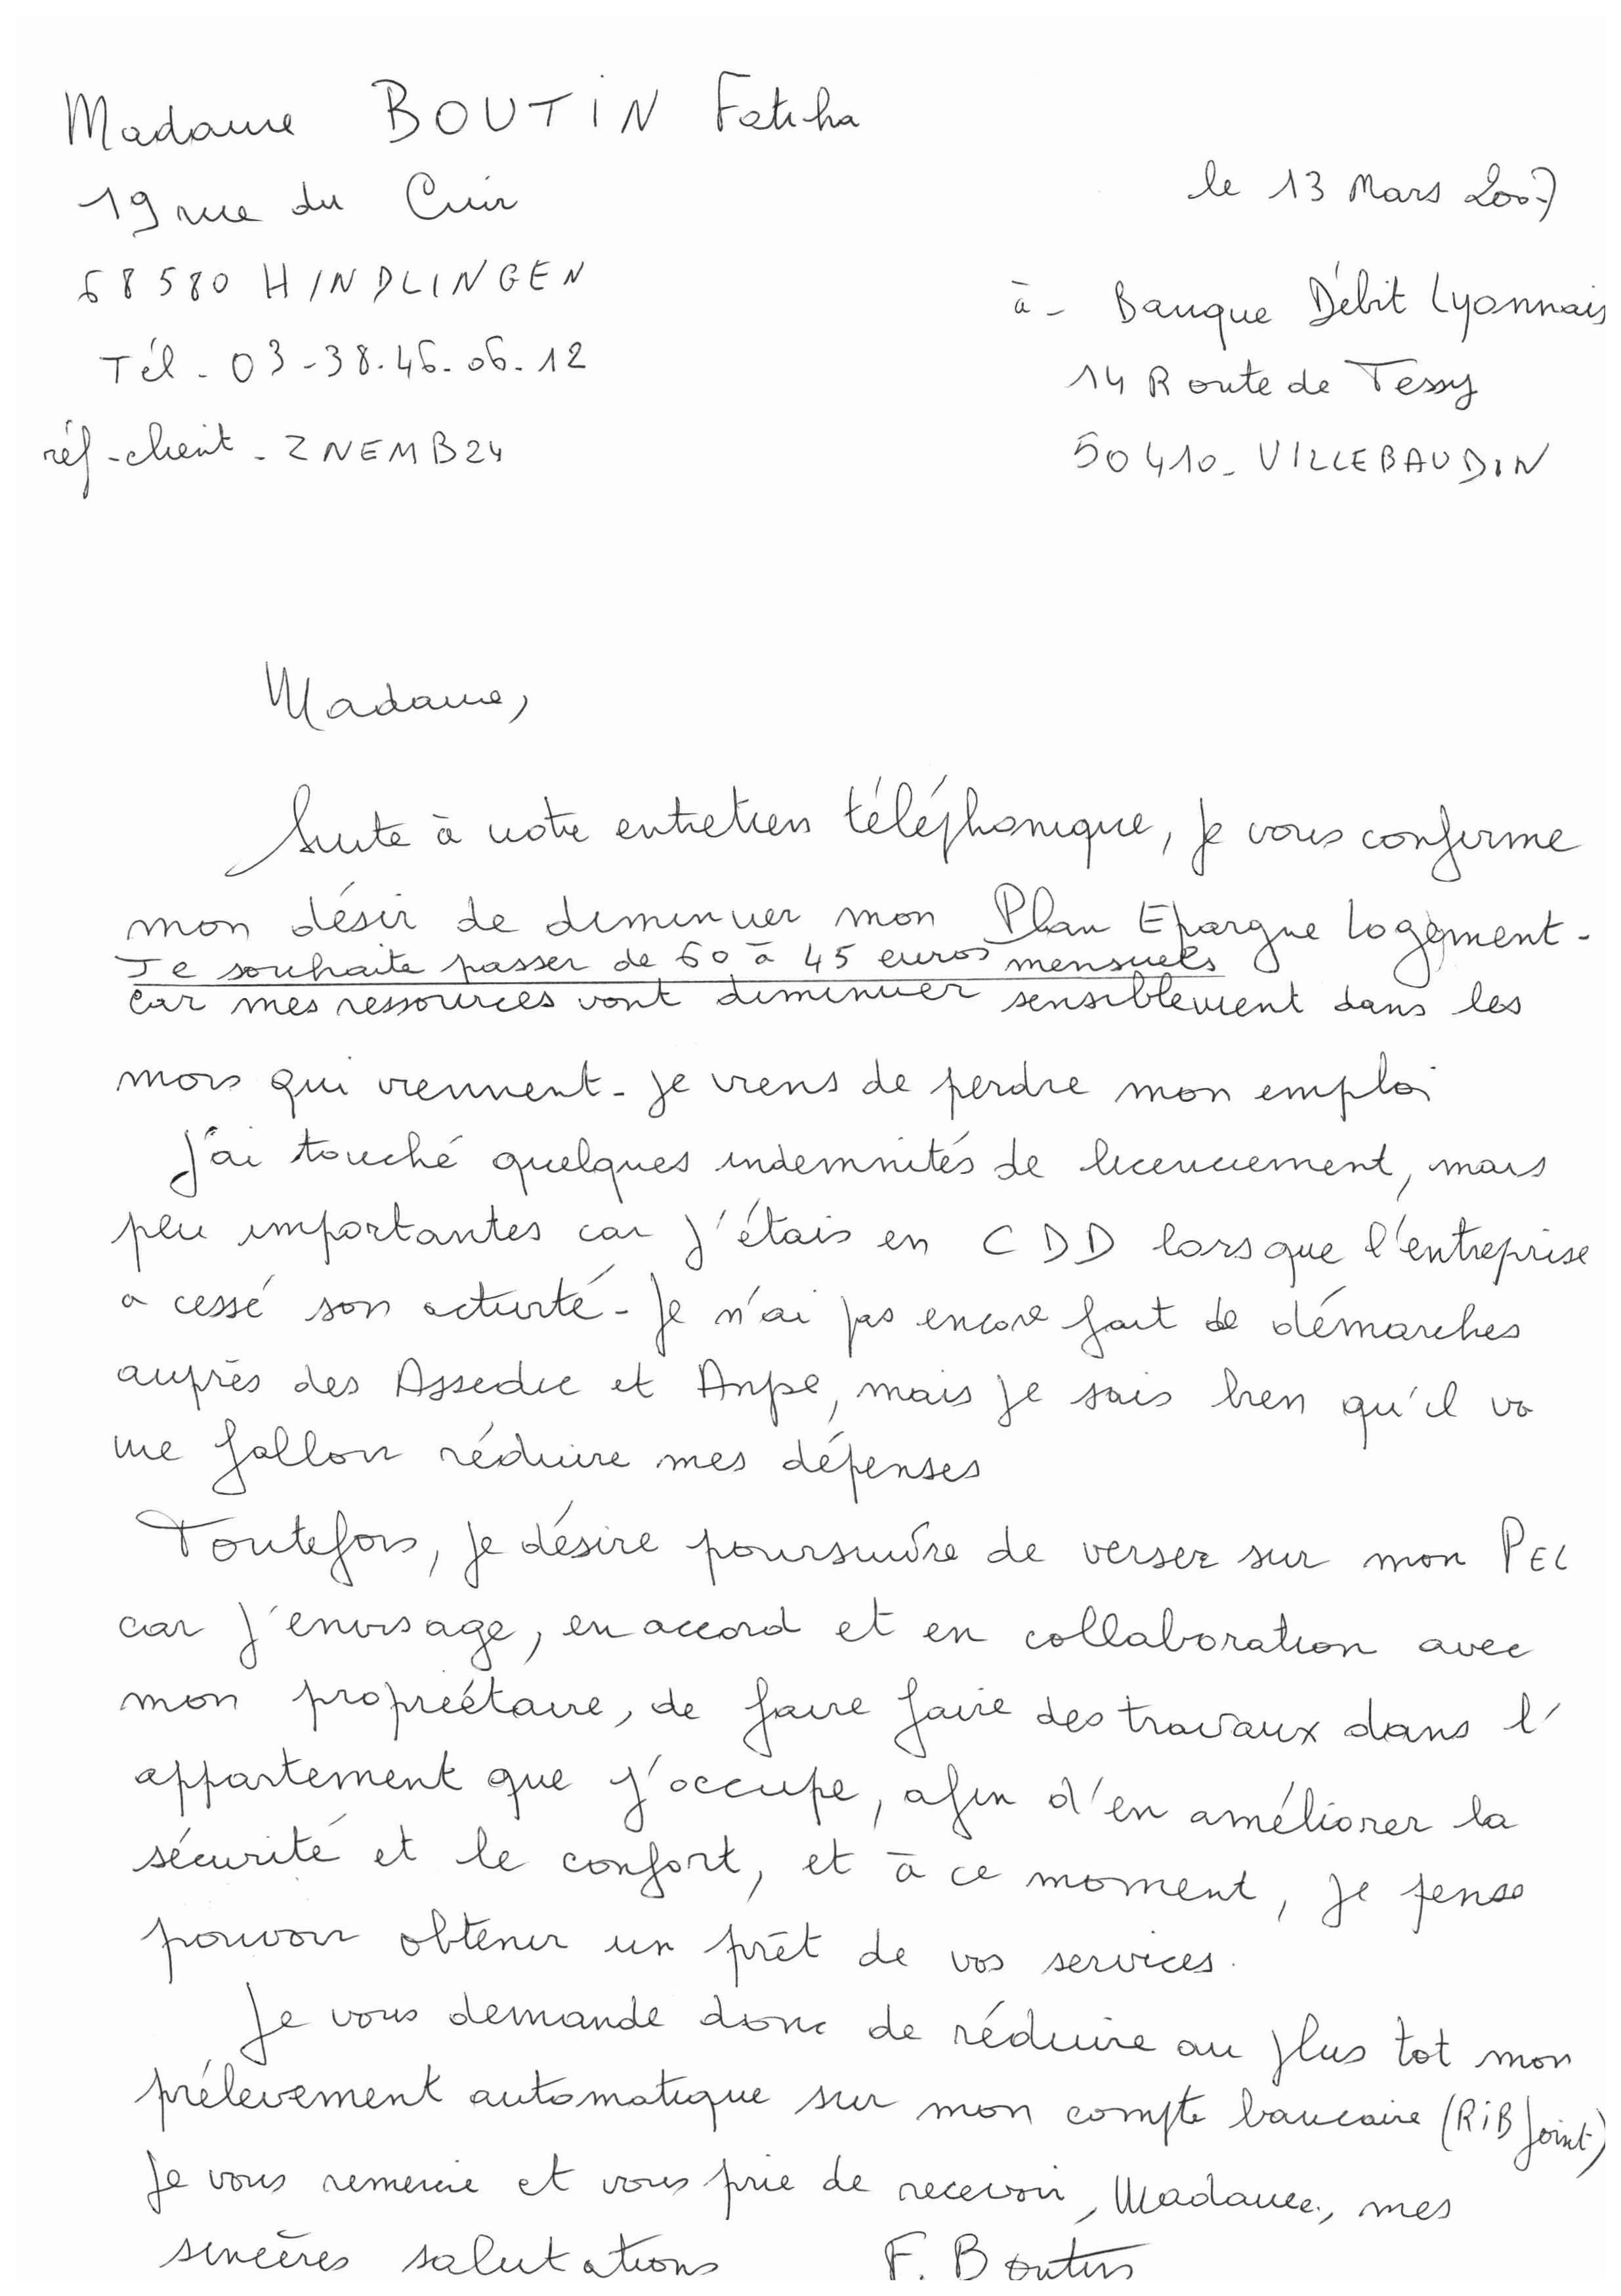 Madame BOUTIN Fatiha
19 rue du Cuir
68580 HINDLINGEN
Tél - 03-38.46.06.12
réf-client - ZNEMB24
le 13 Mars 2007
à - Banque Débit Lyonnais
14 Route de Tessy
50410 - VILLEBAUDIN
Madame,
Suite à notre entretien téléphonique, je vous confirme
mon désir de diminuer mon Plan Epargne logement -
Je souhaite passer de 60 à 45 euros mensuels
car mes ressources vont diminuer sensiblement dans les
mois qui viennent - je viens de perdre mon emploi
J'ai touché quelques indemnités de licenciement, mais
peu importantes car j'étais en CDD lorsque l'entreprise
a cessé son activité - Je n'ai pas encore fait de démarches
auprès des Assedic et Anpe, mais je sais bien qu'il va
me falloir réduire mes dépenses
Toutefois, je désire poursuivre de verser sur mon PEL
car j'envisage, en accord et en collaboration avec
mon propriétaire, de faire faire des travaux dans l'
appartement que j'occupe, afin d'en améliorer la
sécurité et le confort, et à ce moment, je pense
pouvoir obtenir un prêt de vos services.
Je vous demande donc de réduire au plus tot mon
prélevement automatique sur mon compte bancaire (RiB joint)
Je vous remercie et vous prie de recevoir, Madame, mes
sincères salutations F. Boutin